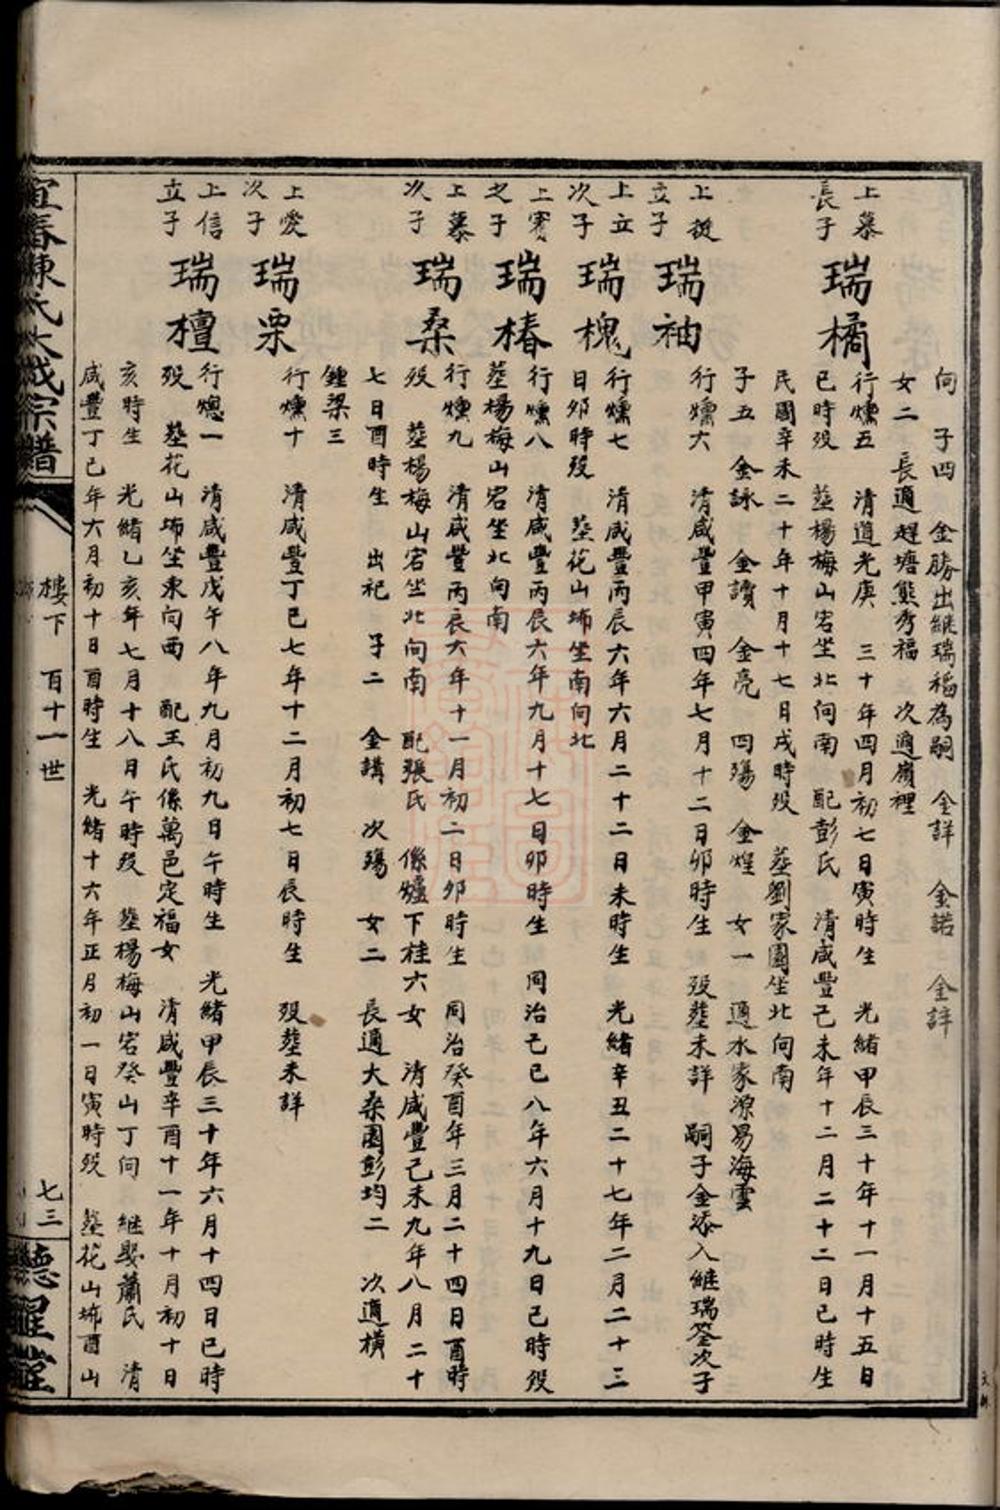 向 子四 金勝出繼瑞福為嗣 金詳 金諾 金詳
女二 長適趕塘熊秀福 次適嶺裡
上慕長子 瑞橘 行燻五 清道光庚 三十年四月初七日寅時生 光緒甲辰三十年十一月十五日
巳時歿 塟楊梅山宕坐北向南 配彭氏 清咸豐己未年十二月二十二日巳時生
民國辛未二十年十月十七日戌時歿 塟劉家園坐北向南
子五 金詠 金讀 金亮 四殤 金煌 女一 適水家源易海雲
立子 瑞袖 行燻六 清咸豐甲寅四年七月十二日卯時生 歿塟未詳 嗣子金添入繼瑞筌次子
上立次子 瑞槐 行燻七 清咸豐丙辰六年六月二十二日未時生 光緒辛丑二十七年二月二十三
日卯時歿 塟花山㘵坐南向北
上賓之子 瑞椿 行燻八 清咸豐丙辰六年九月十七日卯時生 同治己巳八年六月十九日巳時歿
塟楊梅山宕坐北向南
上慕次子 瑞桑 行燻九 清咸豐丙辰六年十一月初二日卯時生 同治癸酉年三月二十四日酉時
歿 塟楊梅山宕坐北向南 配張氏 係爐下桂六女 清咸豐己未九年八月二十
七日酉時生 出祀 子二 金講 次殤 女二 長適大桑園彭均二 次適橫
鍾梁三
上愛次子 瑞栗 行燻十 清咸豐丁巳七年十二月初七日辰時生 歿塟未詳
上信立子 瑞檀 行熜一 清咸豐戊午八年九月初九日午時生 光緒甲辰三十年六月十四日巳時
歿 塟花山㘵坐東向西 配王氏係萬邑定福女 清咸豐辛酉十一年十月初十日
亥時生 光緒乙亥年七月十八日午時歿 塟楊梅山宕癸山丁向 繼娶蕭氏 清
咸豐丁巳年六月初十日酉時生 光緒十六年正月初一日寅時歿 塟花山㘵酉山
宜春陳氏大成宗譜
樓下 百十一世
七三
聽鸝堂